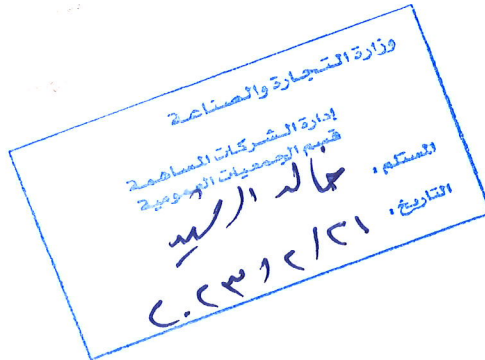 وزارة التجارة والصناعة
إدارة الشركات المساهمة
قسم الجمعيات العمومية
المستلم : خالد الرشيد
التاريخ : ٢٠٢٣/٢/٢١